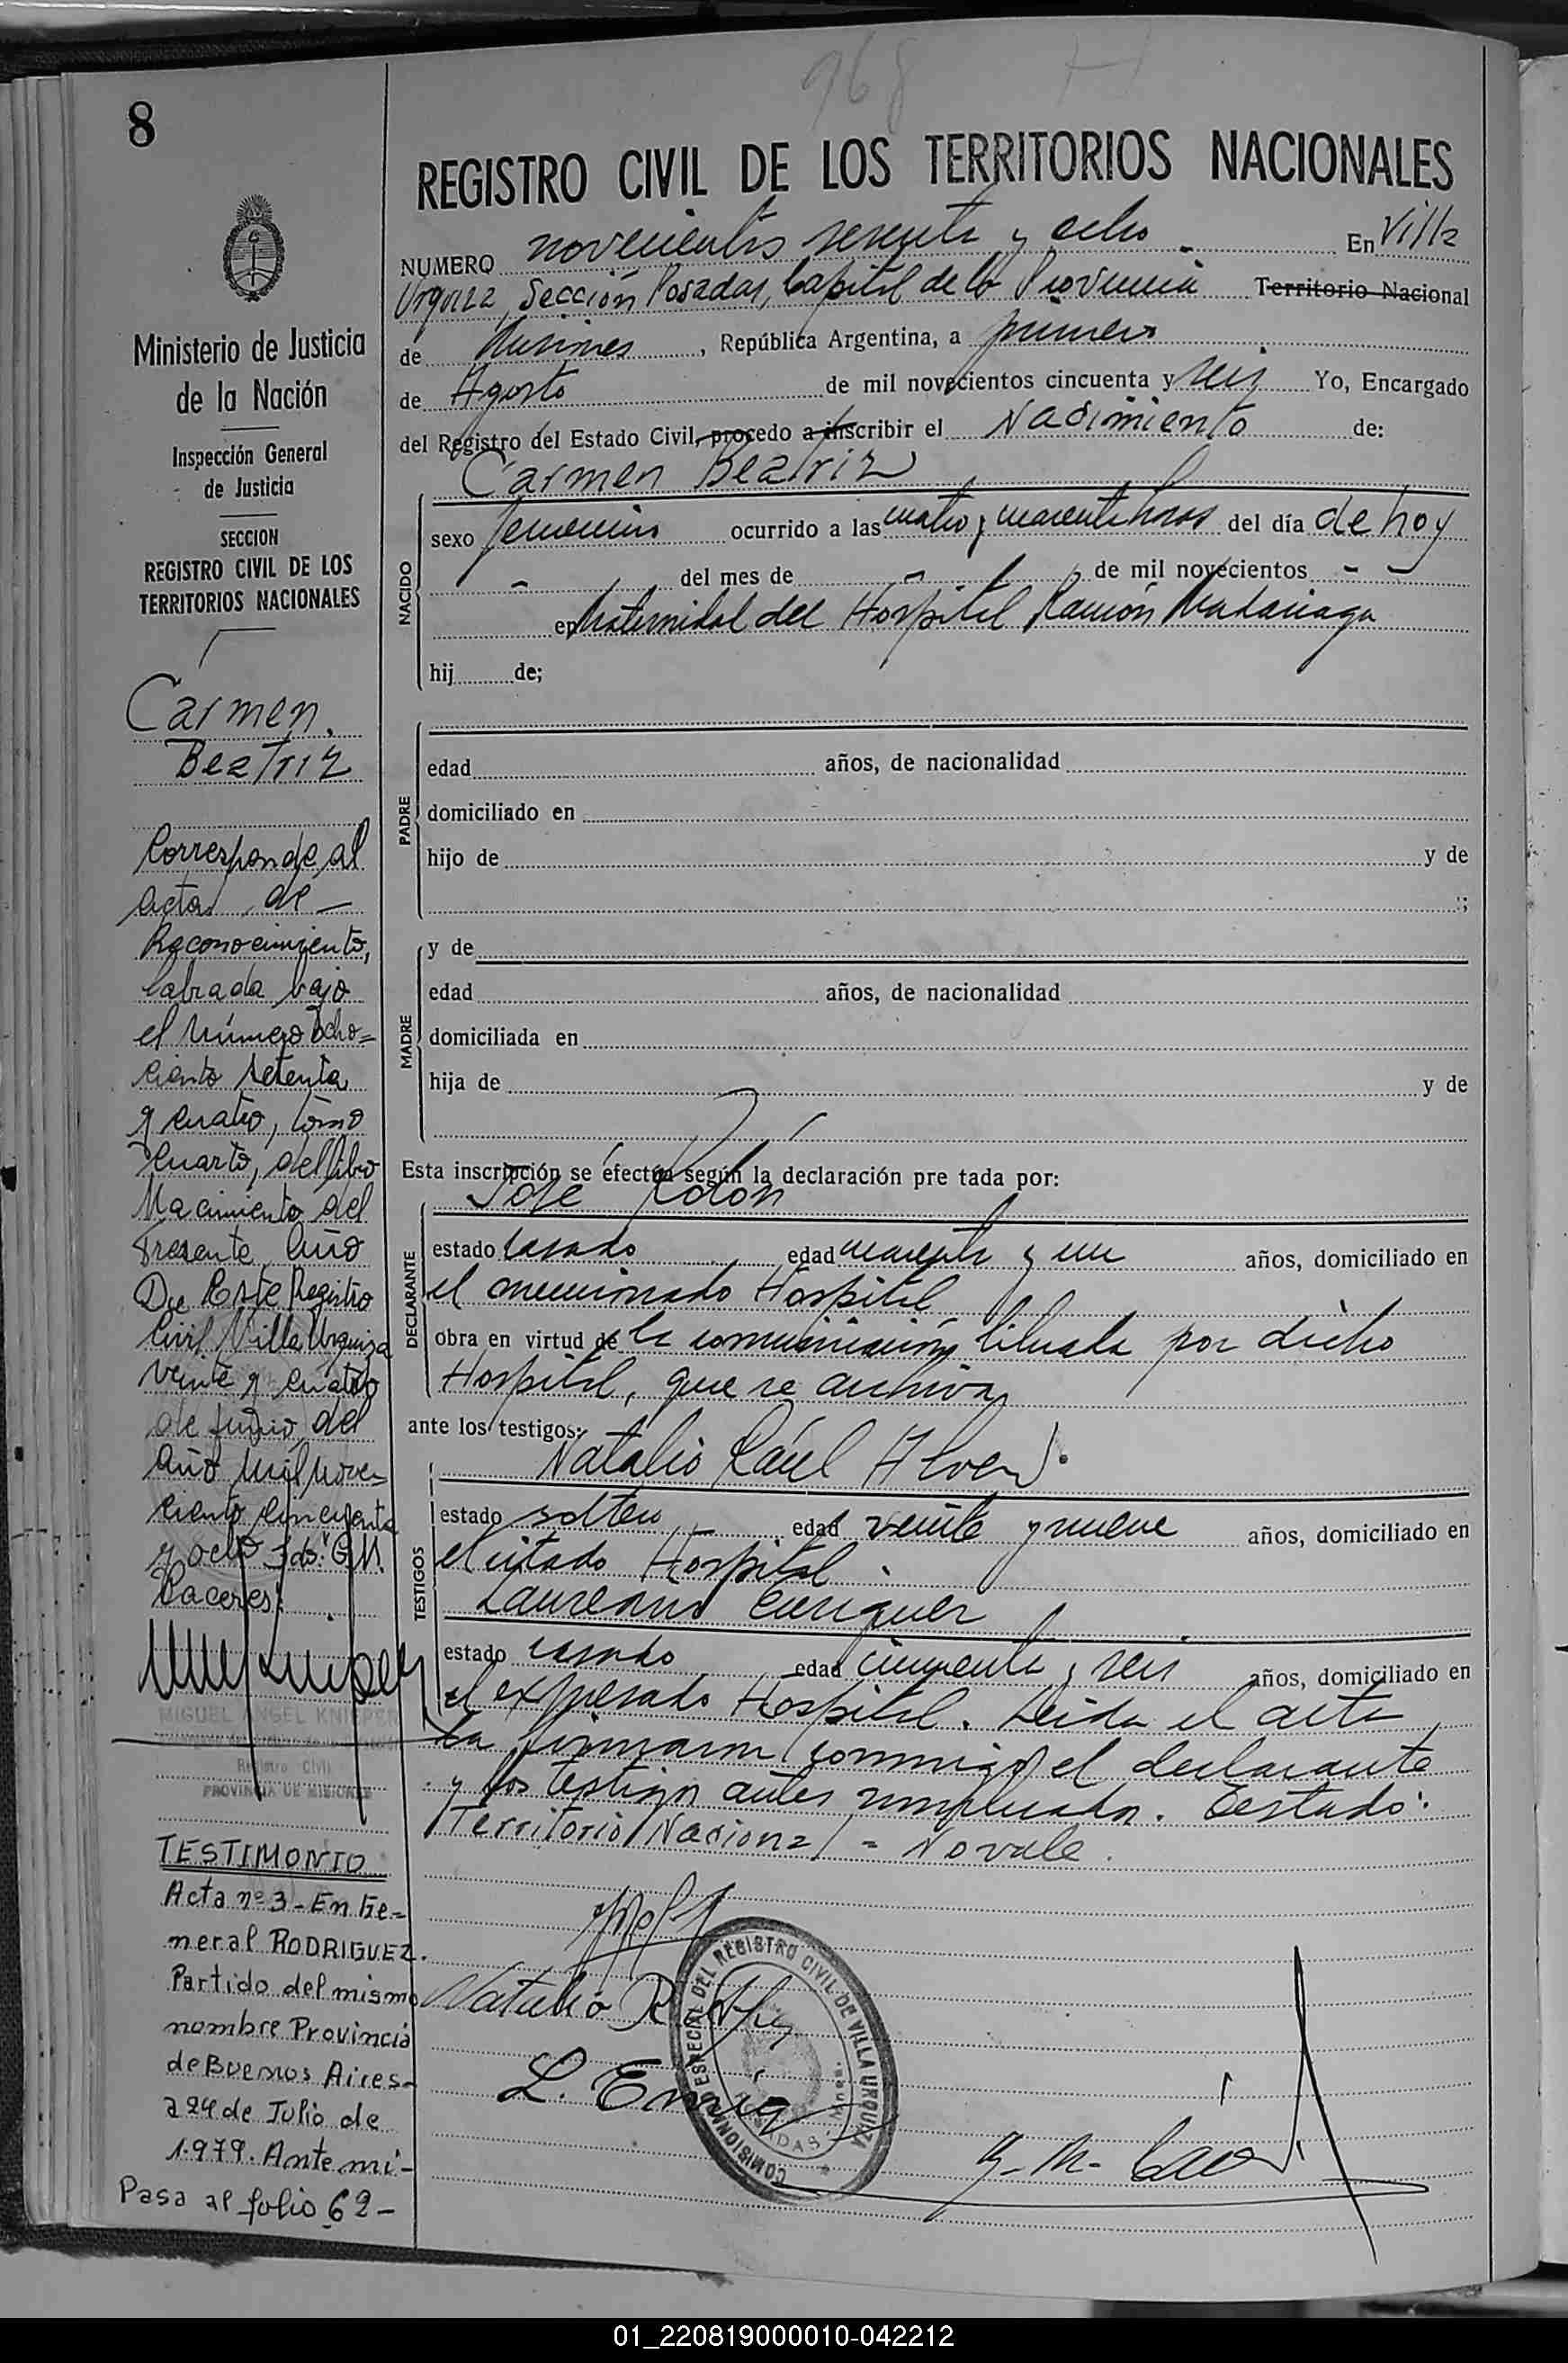 968
8
REGISTRO CIVIL DE LOS TERRITORIOS NACIONALES
NUMERO novecientos sesenta y ocho En Villa
Urquiza, Sección Posadas, Capital de la Provincia Territorio Nacional
de Misiones, República Argentina, a primero
de Agosto de mil novecientos cincuenta y seis Yo, Encargado
del Registro del Estado Civil, procedo a inscribir el Nacimiento de:
Carmen Beatriz
NACIDO
sexo femenino ocurrido a las cuatro y cuarenta horas del día de hoy
- del mes de - de mil novecientos - -
en Maternidad del Hospital Ramón Madariaga
hij de;
PADRE
edad años, de nacionalidad
domiciliado en
hijo de y de
;
MADRE
y de
edad años, de nacionalidad
domiciliada en
hija de y de
Esta inscripción se efectúa según la declaración pre tada por:
José Rolón
DECLARANTE
estado casado edad cuarenta y un años, domiciliado en
el mencionado Hospital
obra en virtud de la comunicación librada por dicho
Hospital, que se archiva
ante los testigos:
Natalio Raúl
TESTIGOS
estado soltero edad veinte y nueve años, domiciliado en
el citado Hospital.
Laureano Enriquez
estado casado edad cincuenta y seis años, domiciliado en
el expresado Hospital. Leída el acta,
la firmaron conmigo el declarante
y los testigos antes nombrados. Testado:
Territorio Nacional = No vale.
Natalio R.
L. Enriq
COMISIONADO ESPECIAL DEL REGISTRO CIVIL DE VILLA URQUIZA
POSADAS - Mnes.
G. M.
Ministerio de Justicia
de la Nación
Inspección General
de Justicia
SECCION
REGISTRO CIVIL DE LOS
TERRITORIOS NACIONALES
Carmen
Beatriz
Corresponde al
acta de
Reconocimiento,
labrada bajo
el número ocho=
ciento setenta
y cuatro, tomo
cuarto, del libro
Nacimiento del
Presente Año
De Este Registro
Civil Villa Urquiza
veinte y cuatro
de Junio del
año mil nove=
ciento cincuenta
y ocho Fdo: G.M.
Caceres.
MIGUEL ANGEL KNIEPER
Registro Civil
PROVINCIA DE MISIONES
TESTIMONIO
Acta nº 3 - En Ge=
neral RODRIGUEZ.
Partido del mismo
nombre Provincia
de Buenos Aires-
a 24 de Julio de
1.979. Ante mí-
Pasa al folio 62-
01_220819000010-042212